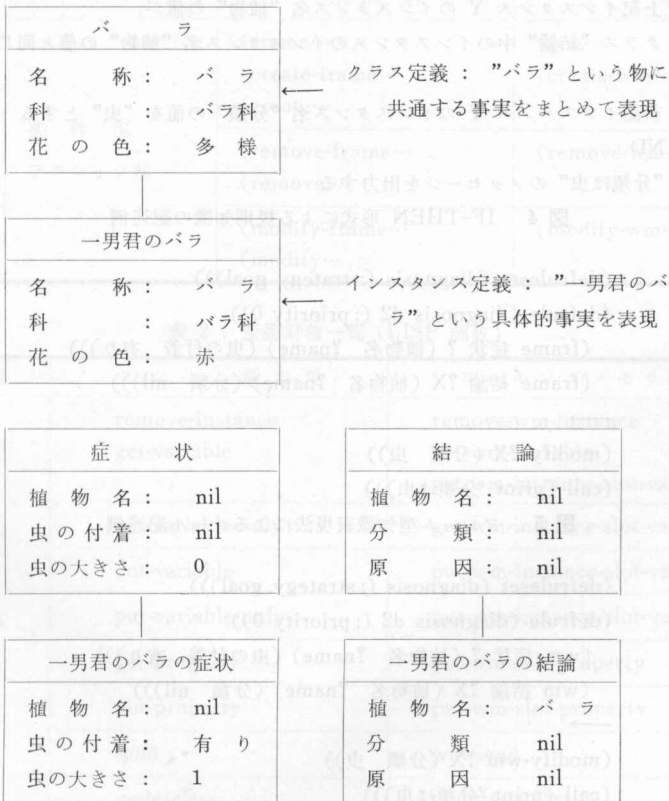 バラ
名称： バラ
科 ： バラ科
花の色： 多様
クラス定義： ”バラ”という物に
共通する事実をまとめて表現
一男君のバラ
名称： バラ
科 ： バラ科
花の色： 赤
インスタンス定義： ”一男君のバ
ラ”という具体的事実を表現
症状
植物名： nil
虫の付着： nil
虫の大きさ： 0
結論
植物名： nil
分類： nil
原因： nil
一男君のバラの症状
植物名： nil
虫の付着： 有り
虫の大きさ： 1
一男君のバラの結論
植物名： バラ
分類 nil
原因 nil